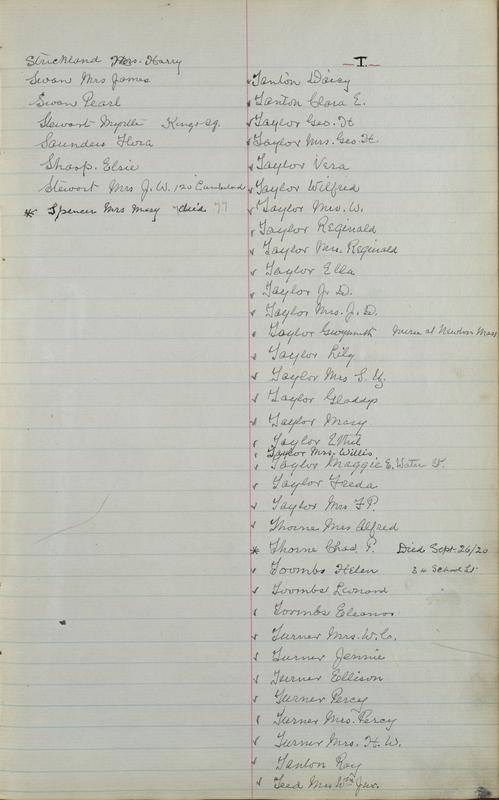 Strickland Mrs. Harry
Swan Mrs James
Swan Pearl
Stewart Myrtle Kings Sq.
Saunders Flora
Sharp. Elsie
Stewart Mrs J. W. 120 Cumberland
* Spencer Mrs Mary died 77
T.
Tanton Daisy
Tanton Clara E.
Taylor Geo. H
Taylor Mrs. Geo. H.
Taylor Vera
Taylor Wilfred
Taylor Mrs. W.
Taylor Reginald
Taylor Mrs. Reginald
Taylor Ella
Taylor J. D.
Taylor Mrs. J. D.
Taylor nurse at Newton Mass
Taylor Lily
Taylor Mrs S.
Taylor Gladdys
Taylor Mary
Taylor Ethel
Taylor Mrs. Willis
Taylor Maggie E. Water St.
Taylor Freda
Taylor Mrs. F P.
Thorne Mrs Alfred
* Thorne Chas P. Died Sept. 26/20
Toombs Helen 34 School St.
Toombs Leonard
Toombs Eleanor
Turner Mrs. W. C.
Turner Jennie
Turner Ellison
Turner Percy
Turner Mrs. Percy
Turner Mrs. H. W.
Tanton Roy
Teed Mrs Wm Jno.